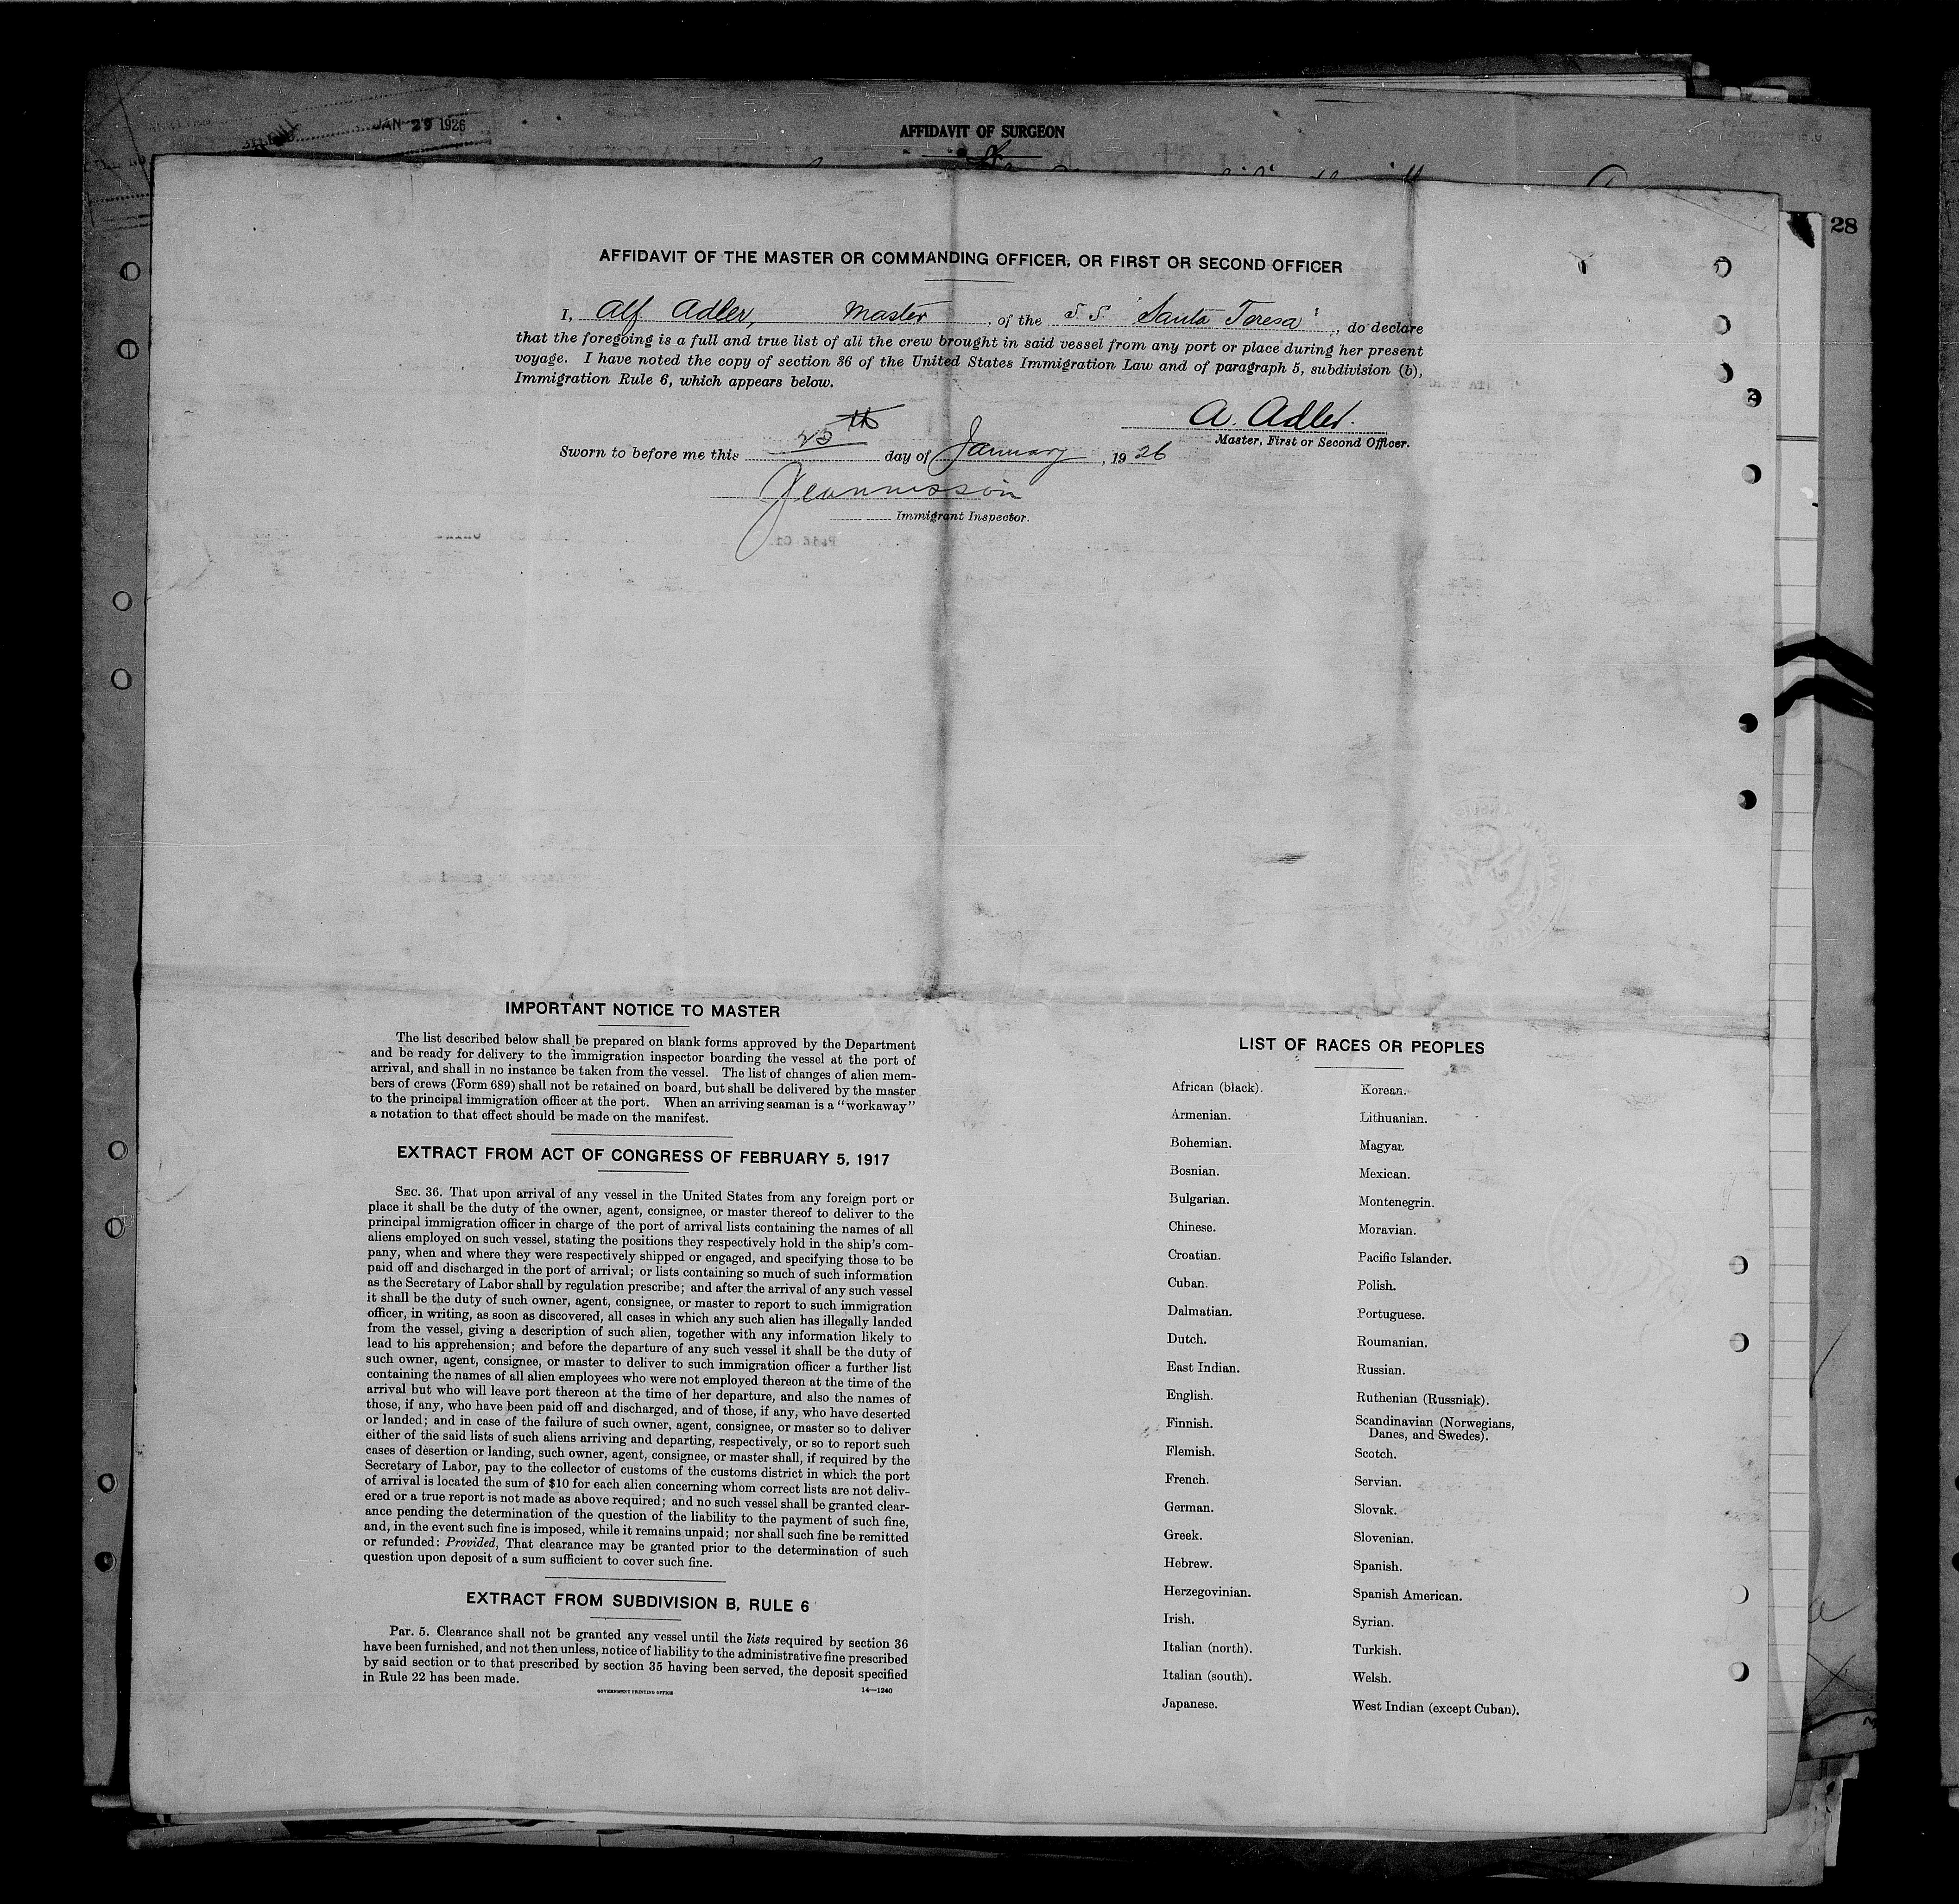 JAN 29 1926
AFFIDAVIT OF SURGEON
28
AFFIDAVIT OF THE MASTER OR COMMANDING OFFICER, OR FIRST OR SECOND OFFICER
I, Alf Adler, Master, of the S S "Santa Teresa", do declare
that the foregoing is a full and true list of all the crew brought in said vessel from any port or place during her present
voyage. I have noted the copy of section 36 of the United States Immigration Law and of paragraph 5, subdivision (b),
Immigration Rule 6, which appears below.
A. Adler.
Master, First or Second Officer.
Sworn to before me this 25th day of January, 1926
Immigrant Inspector.
IMPORTANT NOTICE TO MASTER
The list described below shall be prepared on blank forms approved by the Department
and be ready for delivery to the immigration inspector boarding the vessel at the port of
arrival, and shall in no instance be taken from the vessel. The list of changes of alien mem-
bers of crews (Form 689) shall not be retained on board, but shall be delivered by the master
to the principal immigration officer at the port. When an arriving seaman is a "workaway"
a notation to that effect should be made on the manifest.
EXTRACT FROM ACT OF CONGRESS OF FEBRUARY 5, 1917
SEC. 36. That upon arrival of any vessel in the United States from any foreign port or
place it shall be the duty of the owner, agent, consignee, or master thereof to deliver to the
principal immigration officer in charge of the port of arrival lists containing the names of all
aliens employed on such vessel, stating the positions they respectively hold in the ship's com-
pany, when and where they were respectively shipped or engaged, and specifying those to be
paid off and discharged in the port of arrival; or lists containing so much of such information
as the Secretary of Labor shall by regulation prescribe; and after the arrival of any such vessel
it shall be the duty of such owner, agent, consignee, or master to report to such immigration
officer, in writing, as soon as discovered, all cases in which any such alien has illegally landed
from the vessel, giving a description of such alien, together with any information likely to
lead to his apprehension; and before the departure of any such vessel it shall be the duty of
such owner, agent, consignee, or master to deliver to such immigration officer a further list
containing the names of all alien employees who were not employed thereon at the time of the
arrival but who will leave port thereon at the time of her departure, and also the names of
those, if any, who have been paid off and discharged, and of those, if any, who have deserted
or landed; and in case of the failure of such owner, agent, consignee, or master so to deliver
either of the said lists of such aliens arriving and departing, respectively, or so to report such
cases of desertion or landing, such owner, agent, consignee, or master shall, if required by the
Secretary of Labor, pay to the collector of customs of the customs district in which the port
of arrival is located the sum of $10 for each alien concerning whom correct lists are not deliv-
ered or a true report is not made as above required; and no such vessel shall be granted clear-
ance pending the determination of the question of the liability to the payment of such fine,
and, in the event such fine is imposed, while it remains unpaid; nor shall such fine be remitted
or refunded: Provided, That clearance may be granted prior to the determination of such
question upon deposit of a sum sufficient to cover such fine.
EXTRACT FROM SUBDIVISION B, RULE 6
Par. 5. Clearance shall not be granted any vessel until the lists required by section 36
have been furnished, and not then unless, notice of liability to the administrative fine prescribed
by said section or to that prescribed by section 35 having been served, the deposit specified
in Rule 22 has been made.
GOVERNMENT PRINTING OFFICE 14—1240
LIST OF RACES OR PEOPLES
African (black).
Armenian.
Bohemian.
Bosnian.
Bulgarian.
Chinese.
Croatian.
Cuban.
Dalmatian.
Dutch.
East Indian.
English.
Finnish.
Flemish.
French.
German.
Greek.
Hebrew.
Herzegovinian.
Irish.
Italian (north).
Italian (south).
Japanese.
Korean.
Lithuanian.
Magyar.
Mexican.
Montenegrin.
Moravian.
Pacific Islander.
Polish.
Portuguese.
Roumanian.
Russian.
Ruthenian (Russniak).
Scandinavian (Norwegians,
Danes, and Swedes).
Scotch.
Servian.
Slovak.
Slovenian.
Spanish.
Spanish American.
Syrian.
Turkish.
Welsh.
West Indian (except Cuban).